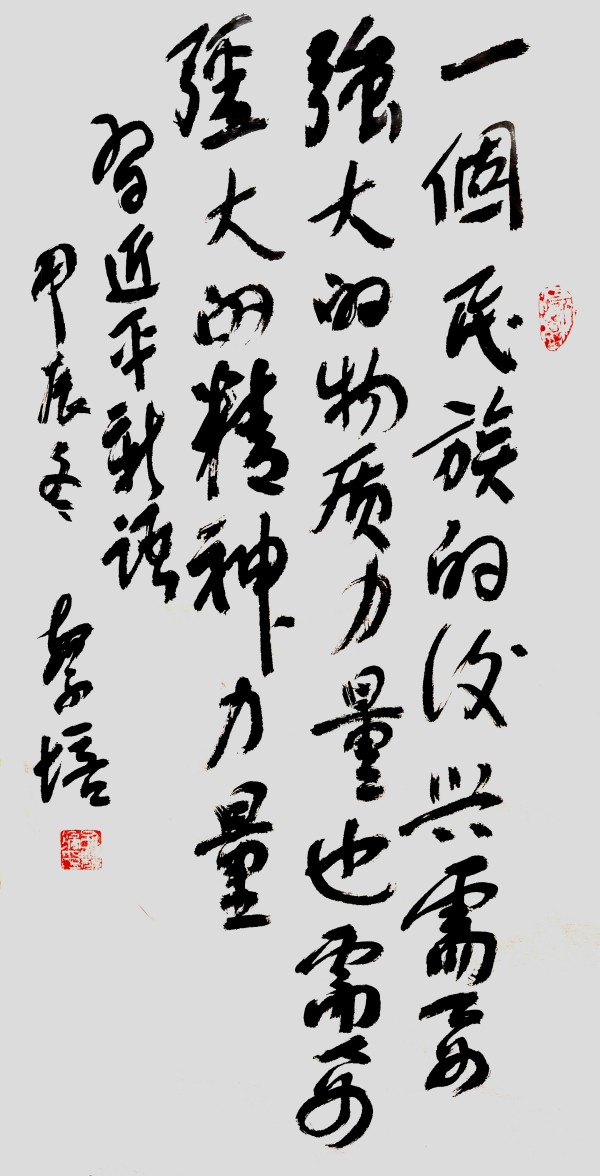 一個民族的復兴需要
強大的物质力量也需要
彊大的精神力量
習近平新語
甲辰冬